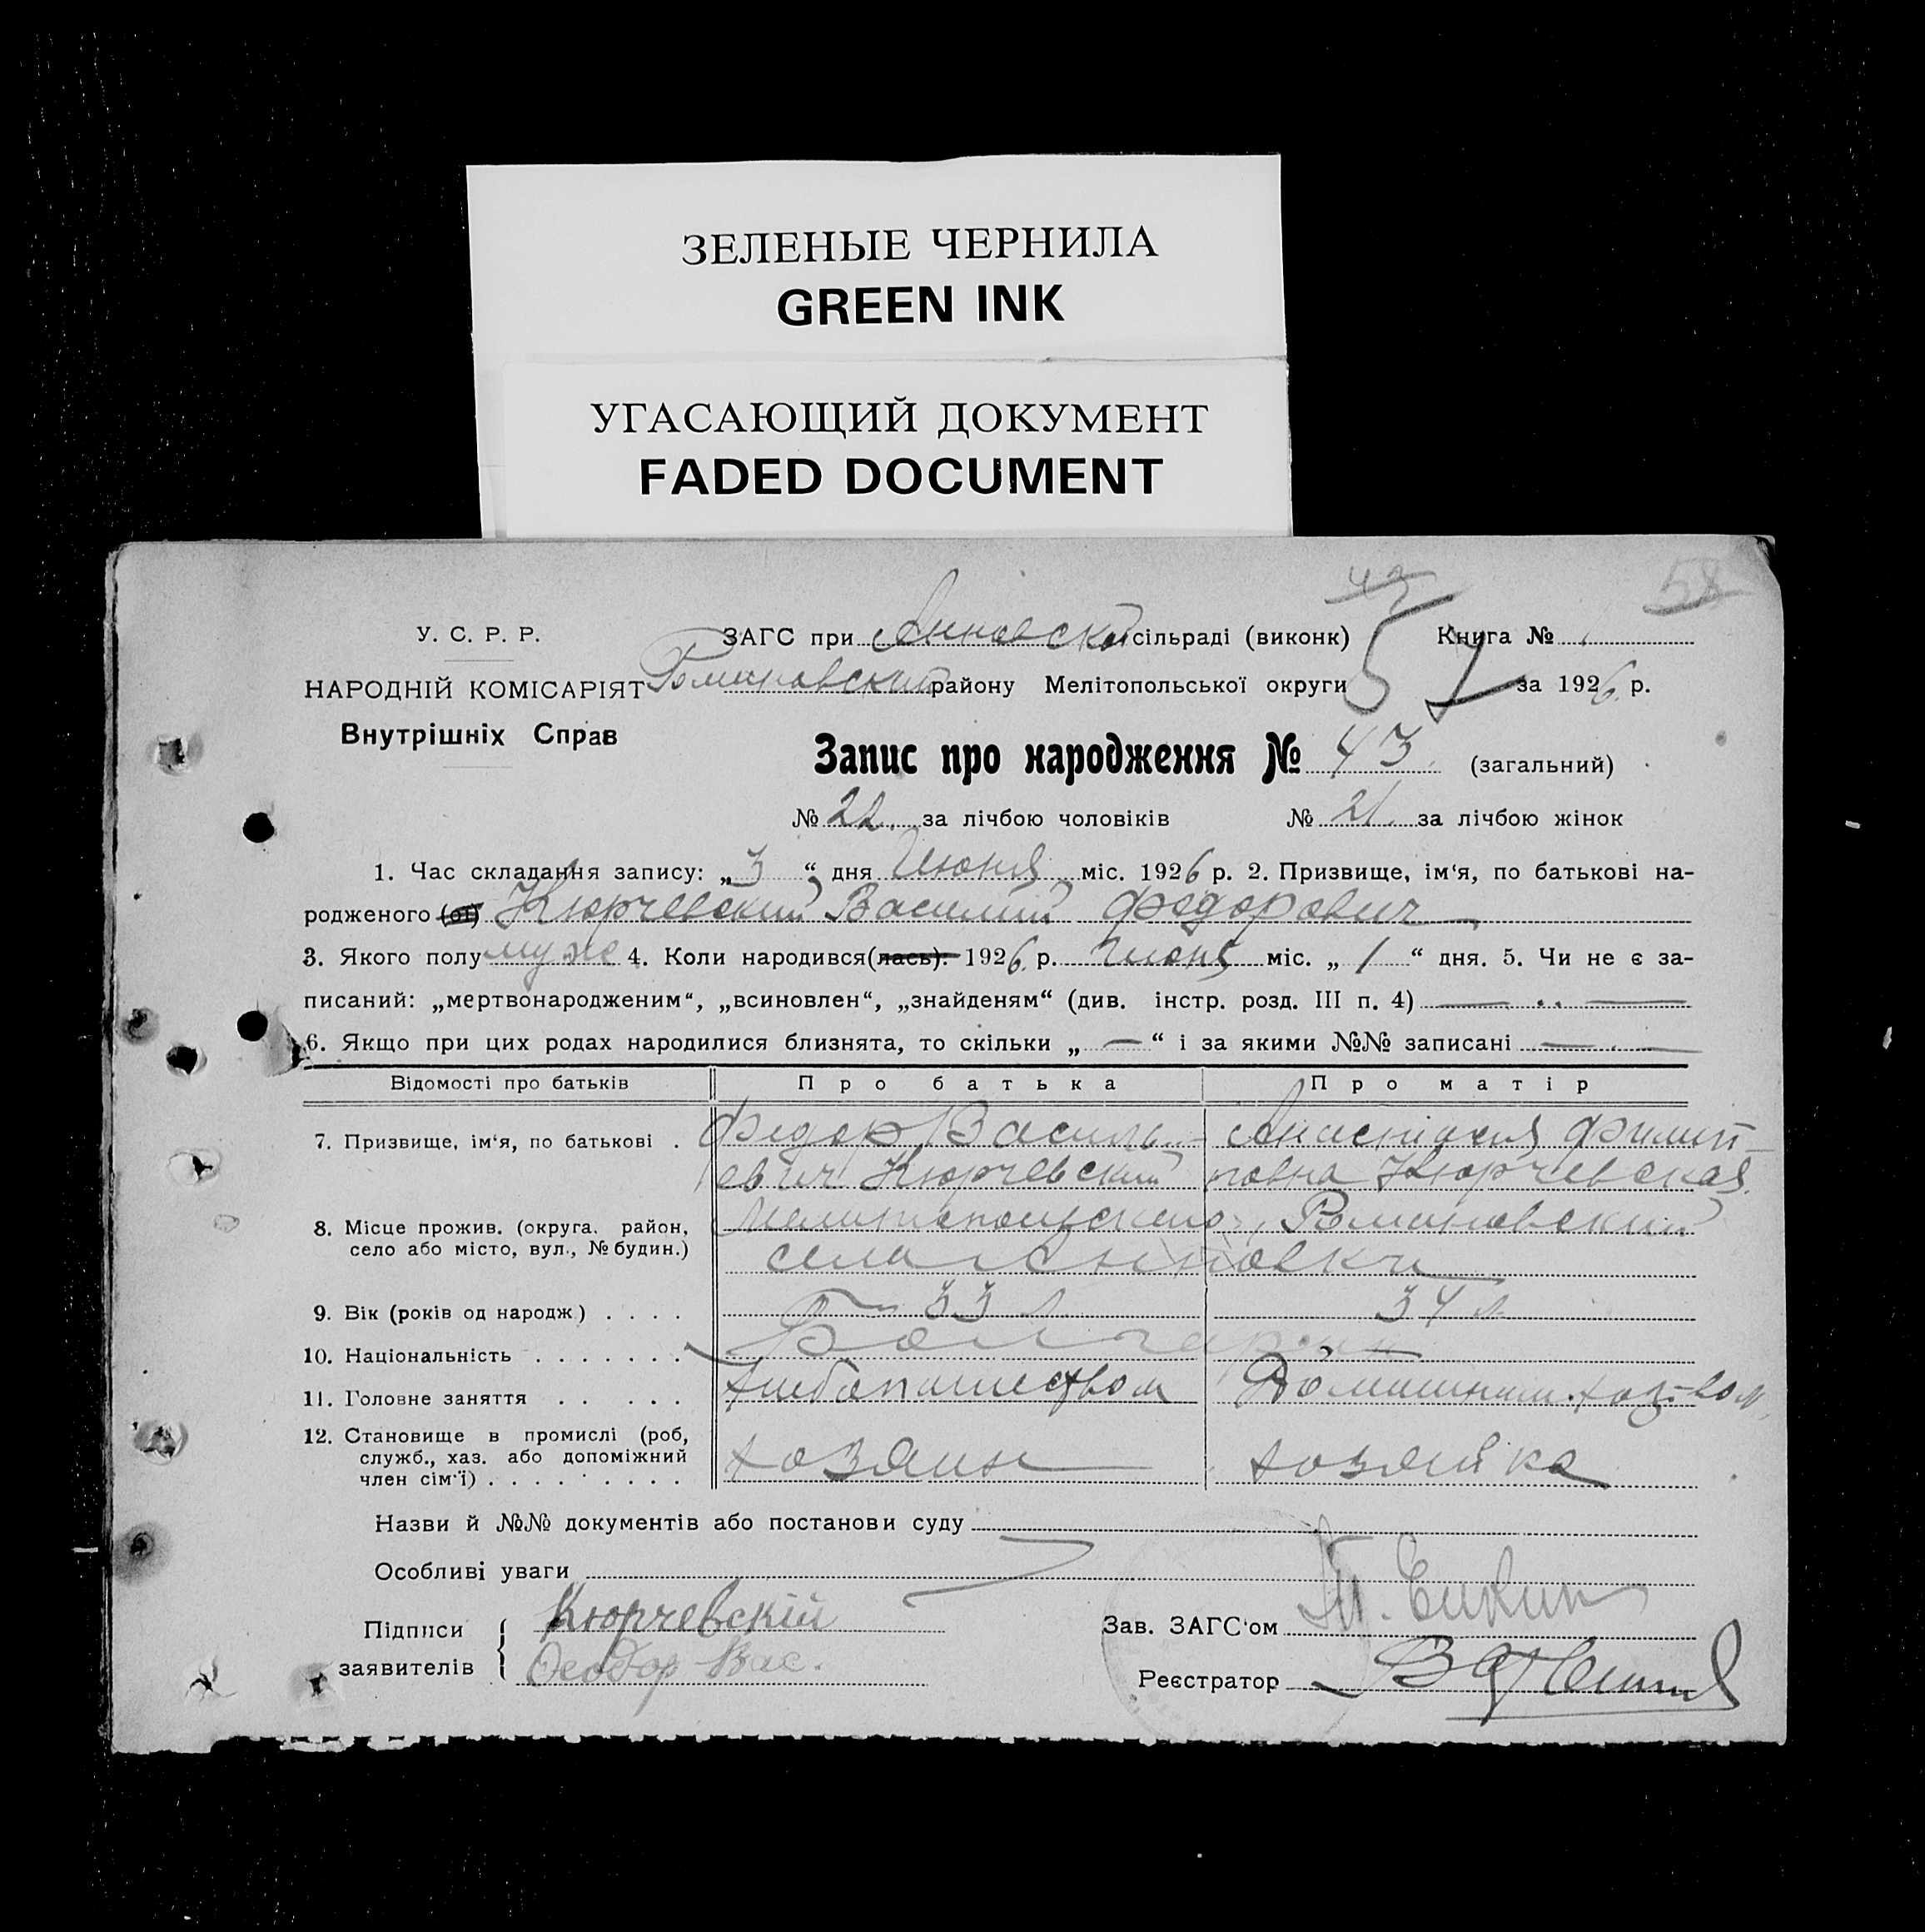 ЗЕЛЕНЫЕ ЧЕРНИЛА
GREEN INK
УГАСАЮЩИЙ ДОКУМЕНТ
FADED DOCUMENT
43 58
У. С. Р. Р. ЗАГС при Анновской сільраді (виконк) 57 Книга №
НАРОДНІЙ КОМІСАРІЯТ Романовский району Мелітопольської округи за 1926 р.
Внутрішніх Справ
Запис про народження № 43. (загальний)
№ 22. за лічбою чоловіків № 21. за лічбою жінок
1. Час складання запису: „ 3 “ дня Июня міс. 1926 р. 2. Призвище, ім‘я, по батькові на-
родженого (ої) Кюрчевский Василий Федорович
3. Якого полу муже 4. Коли народився(лась). 1926 р. Июня міс. „ 1 “ дня. 5. Чи не є за-
писаний: „мертвонародженим“, „всиновлен“, „знайденям“ (див. інстр. розд. III п. 4) — „ —
6. Якщо при цих родах народилися близнята, то скільки „ — “ і за якими №№ записані —
Відомості про батьків Про батька Про матір
7. Призвище, ім‘я, по батькові . Федор Василь- Анастасия Филип-
евич Кюрчевский повна Кюрчевская.
8. Місце прожив. (округа, район, Мелитопольского, Романовский
село або місто, вул., № будин.) села Анновки
9. Вік (років од народж) . . . . 33 л 34 л.
10. Національність . . . . . . . Болгары
11. Головне заняття . . . . . Хлебопашеством Домашним хоз-вом,
12. Становище в промислі (роб,
служб., хаз. або допоміжний хозяин хозяйка
член сім‘ї) . . . . . . . . .
Назви й №№ документів або постанови суду
Особливі уваги
Підписи Кюрчевскій
заявителів Феодор Вас.
Зав. ЗАГС‘ом
Реєстратор